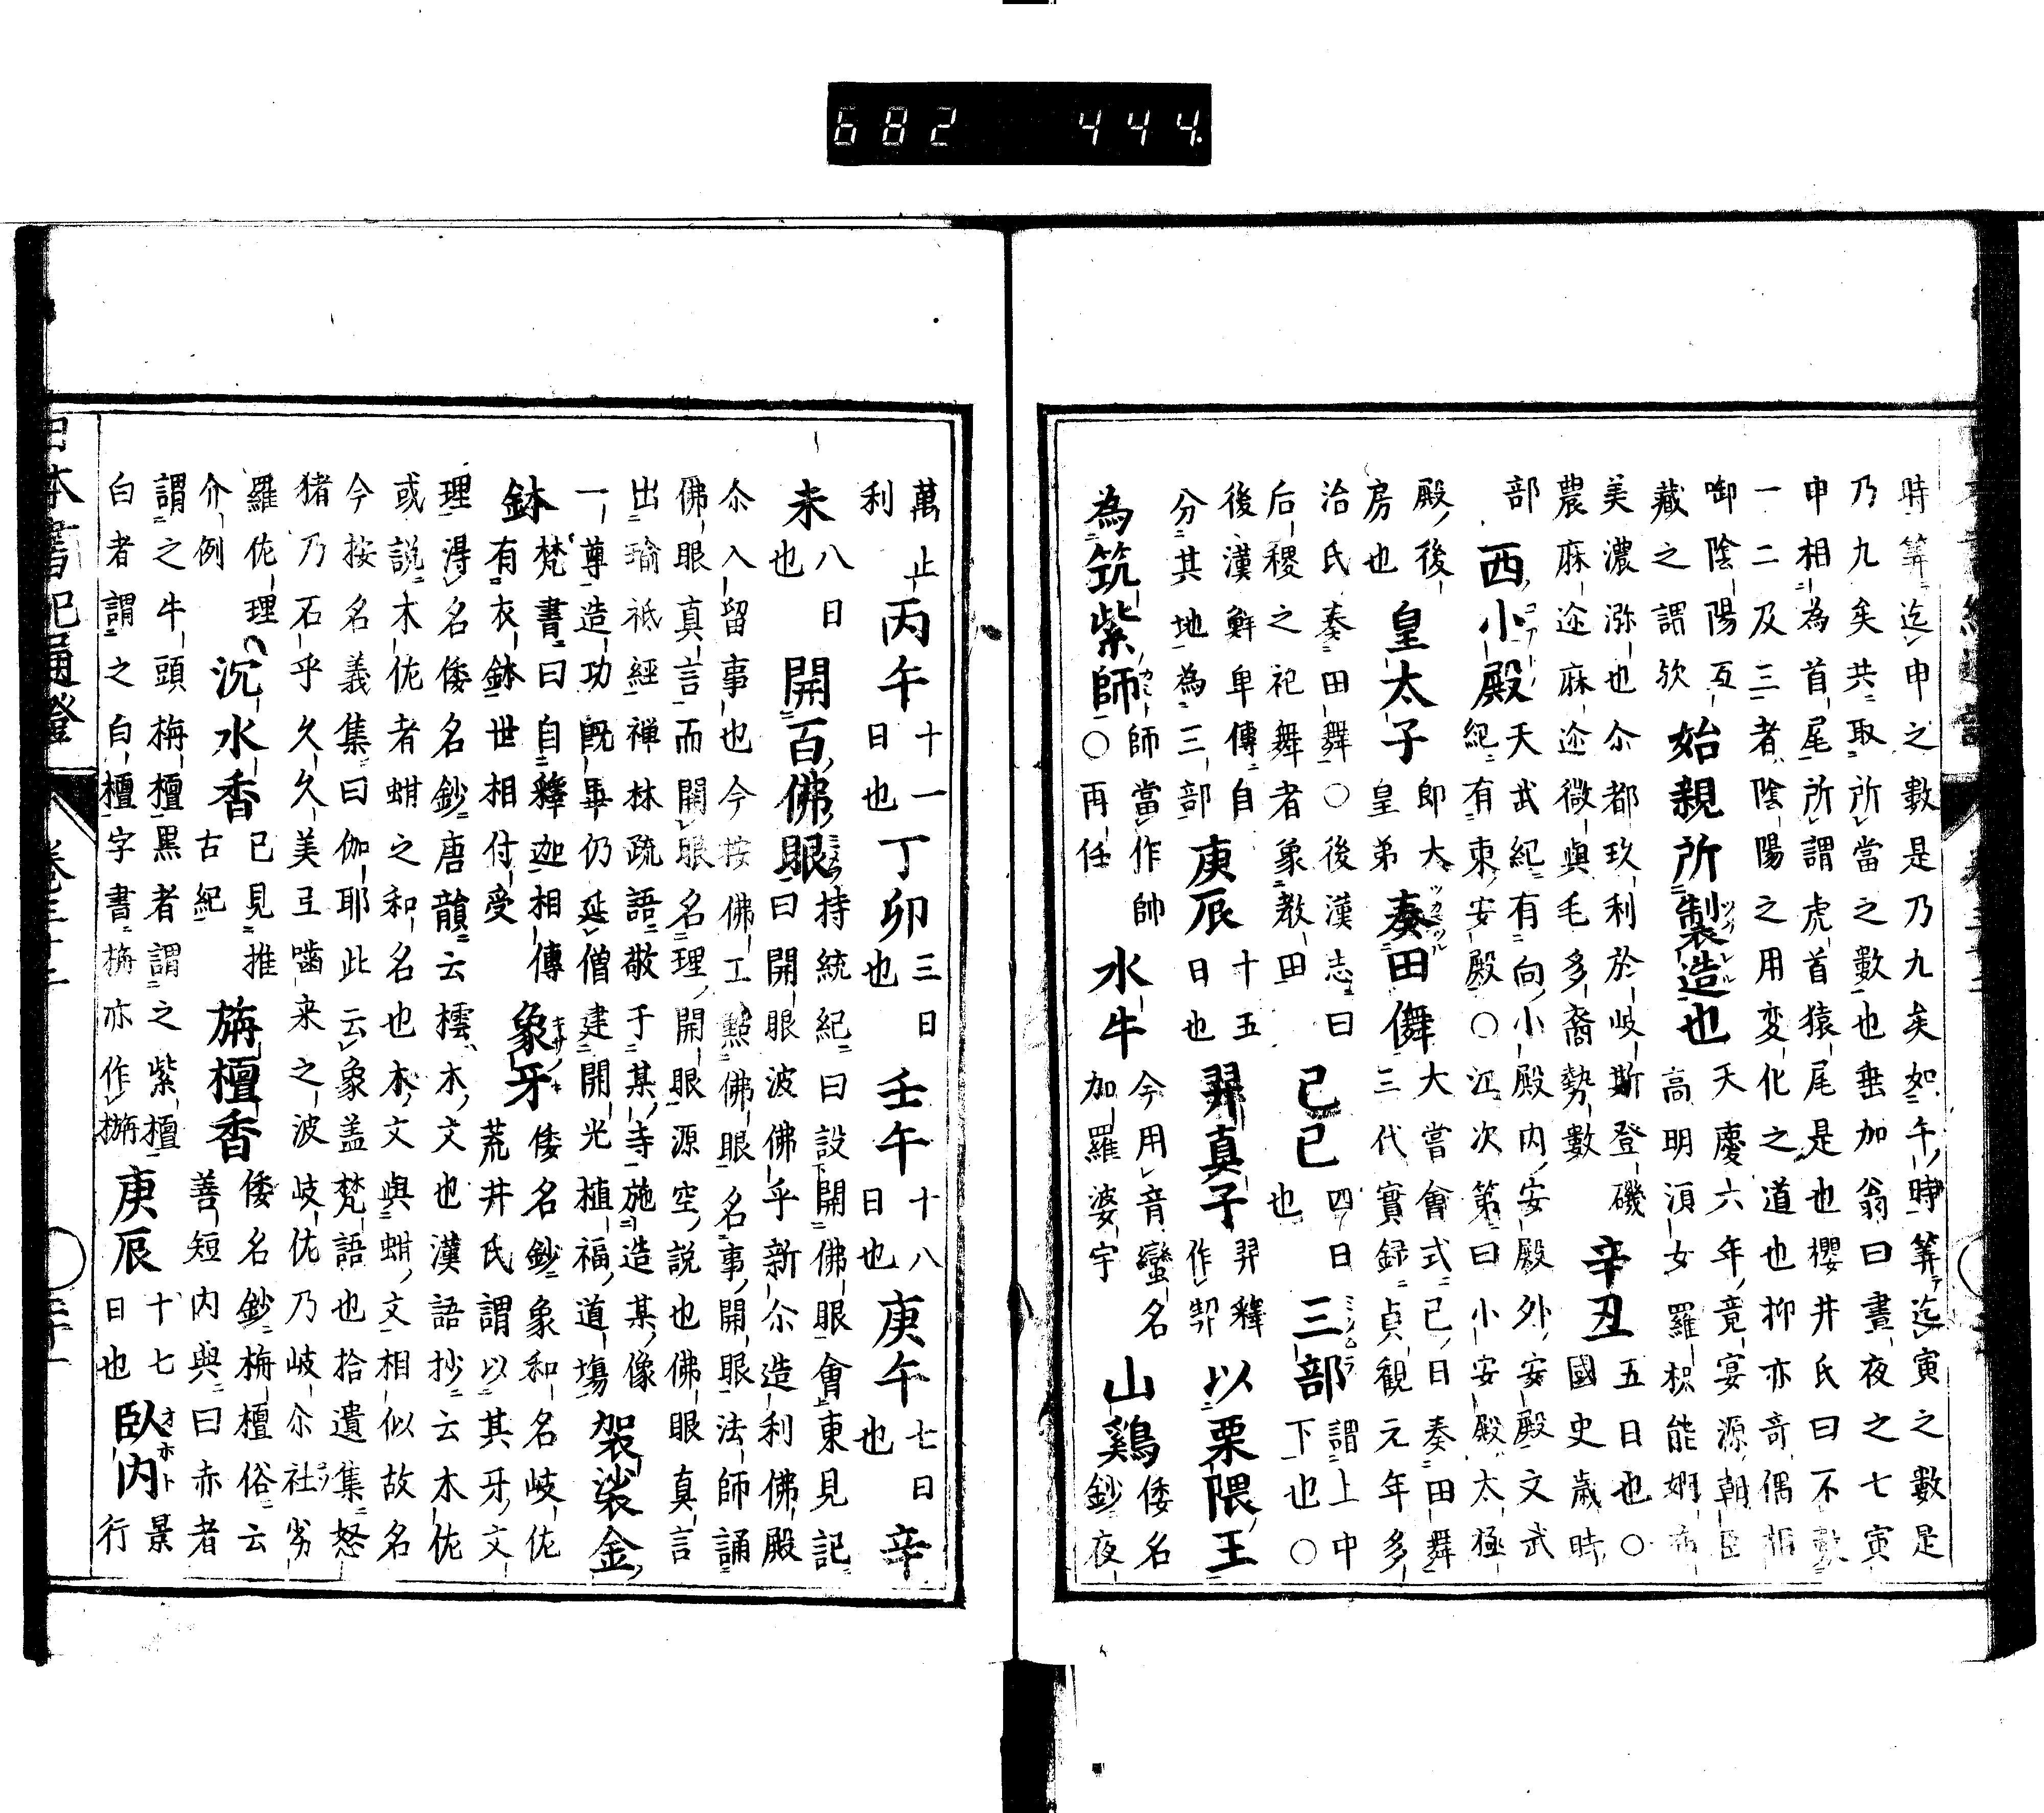 682 444
時筭迄申之數是乃九矣如午時筭迄寅之數是
乃九矣共取所當之數也垂加翁曰晝夜之七寅
申相為首尾所謂虎首猿尾是也櫻井氏曰不數
一二及三者陰陽之用変化之道也抑亦奇偶相
啣陰陽互
藏之謂欤
始親所製造也
天慶六年竟宴源朝臣
高明湏女羅枳能婀
美濃泲也尒都玖利於岐斯登磯
農麻迩麻迩微與毛多裔勢數
辛丑
五日也〇
國史歳時
部
西小殿
天武紀有向小殿内安殿外安殿文武
紀有東安殿〇江次第曰小安殿太極
殿後
房也
皇太子
即大
皇弟
奏田儛
大嘗會式巳日奏田舞
三代實録貞観元年多
治氏奏田舞〇後漢志曰
后稷之祀舞者象教田
己巳
四日
也
三部
謂上中
下也〇
後漢鮮卑傳自
分其地為三部
庚辰
十五
日也
羿真子
羿釋
作㓞
以栗隈王
為筑紫師
師當作帥
〇再任
水牛
今用音蠻名
加羅婆宇
山鷄
倭名
鈔夜
萬止
利
丙午
十一
日也
丁卯
三日
也
壬午
十八
日也
庚午
七日
也
辛
未
八日
也
開百佛眼
持統紀曰設開佛眼會東見記
曰開眼波佛乎新尒造利佛殿
尒入留事也今按佛工㸃佛眼名事開眼法師誦
佛眼真言而開眼名理開眼源空説也佛眼真言
出瑜祇經禅林疏語敬于某寺施造某像
一尊造功既畢仍延僧建開光植福道塲
袈裟金
鉢
梵書曰自釋迦相傳
有衣鉢世相付受
象牙
倭名鈔象和名岐佐
荒井氏謂以其牙文
理淂名倭名鈔唐韻云橒木文也漢語抄云木佐
或説木佐者蚶之和名也木文與蚶文相似故名
今按名義集曰伽耶此云象盖梵語也拾遺集怒
猪乃石乎久久美𢎞嚙来之波岐佐乃岐尒社劣
羅佐理
介例
沉水香
已見推
古紀
旃檀香
倭名鈔栴檀俗云
善短内典曰赤者
謂之牛頭栴檀黒者謂之紫檀
白者謂之白檀字書栴亦作㫋
庚辰
十七
日也
臥内
景
行
日本書紀通證